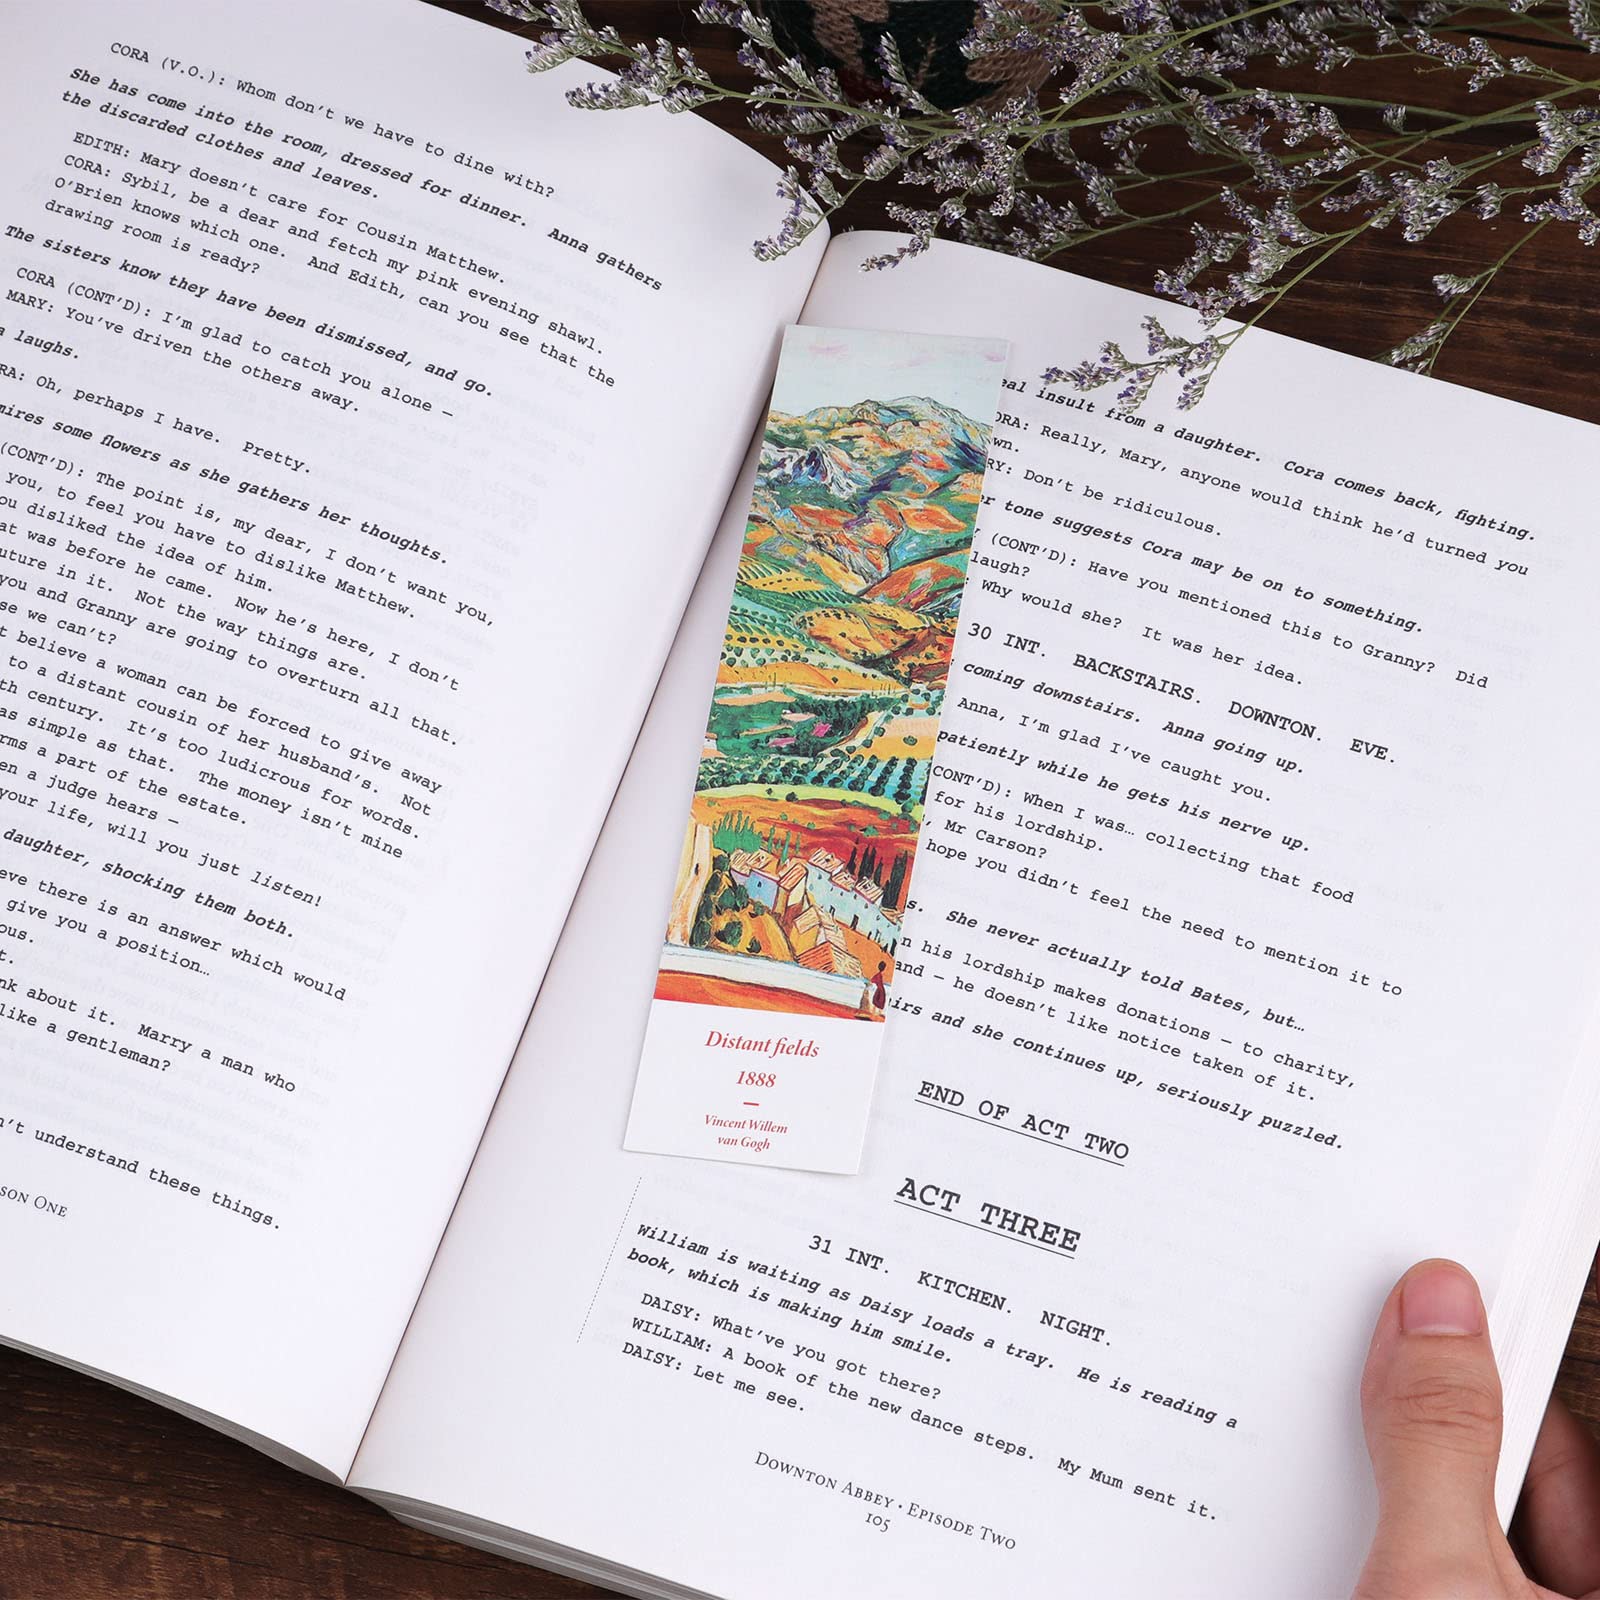 CORA (V.O.): Whom don't we have to dine with?
She has come into the room, dressed for dinner. Anna gathers
the discarded clothes and leaves.
EDITH: Mary doesn't care for Cousin Matthew.
CORA: Sybil, be a dear and fetch my pink evening shawl.
O'Brien knows which one. And Edith, can you see that the
drawing room is ready?
The sisters know they have been dismissed, and go.
CORA (CONT'D): I'm glad to catch you alone –
MARY: You've driven the others away.
laughs.
RA: Oh, perhaps I have. Pretty.
mires some flowers as she gathers her thoughts.
(CONT'D): The point is, my dear, I don't want you,
you, to feel you have to dislike Matthew.
ou disliked the idea of him.
at was before he came. Now he's here, I don't
uture in it. Not the way things are.
you and Granny are going to overturn all that.
se we can't?
t believe a woman can be forced to give away
to a distant cousin of her husband's. Not
th century. It's too ludicrous for words.
as simple as that. The money isn't mine
rms a part of the estate.
en a judge hears –
your life, will you just listen!
daughter, shocking them both.
eve there is an answer which would
give you a position…
ous.
t.
nk about it. Marry a man who
like a gentleman?
n't understand these things.
SON ONE
eal insult from a daughter. Cora comes back, fighting.
ORA: Really, Mary, anyone would think he'd turned you
wn.
RY: Don't be ridiculous.
r tone suggests Cora may be on to something.
(CONT'D): Have you mentioned this to Granny? Did
laugh?
: Why would she? It was her idea.
30 INT. BACKSTAIRS. DOWNTON. EVE.
coming downstairs. Anna going up.
Anna, I'm glad I've caught you.
patiently while he gets his nerve up.
CONT'D): When I was… collecting that food
for his lordship.
, Mr Carson?
hope you didn't feel the need to mention it to
s. She never actually told Bates, but…
n his lordship makes donations – to charity,
and – he doesn't like notice taken of it.
irs and she continues up, seriously puzzled.
END OF ACT TWO
ACT THREE
31 INT. KITCHEN. NIGHT.
William is waiting as Daisy loads a tray. He is reading a
book, which is making him smile.
DAISY: What've you got there?
WILLIAM: A book of the new dance steps. My Mum sent it.
DAISY: Let me see.
DOWNTON ABBEY • EPISODE TWO
105
Distant fields
1888
—
Vincent Willem
van Gogh